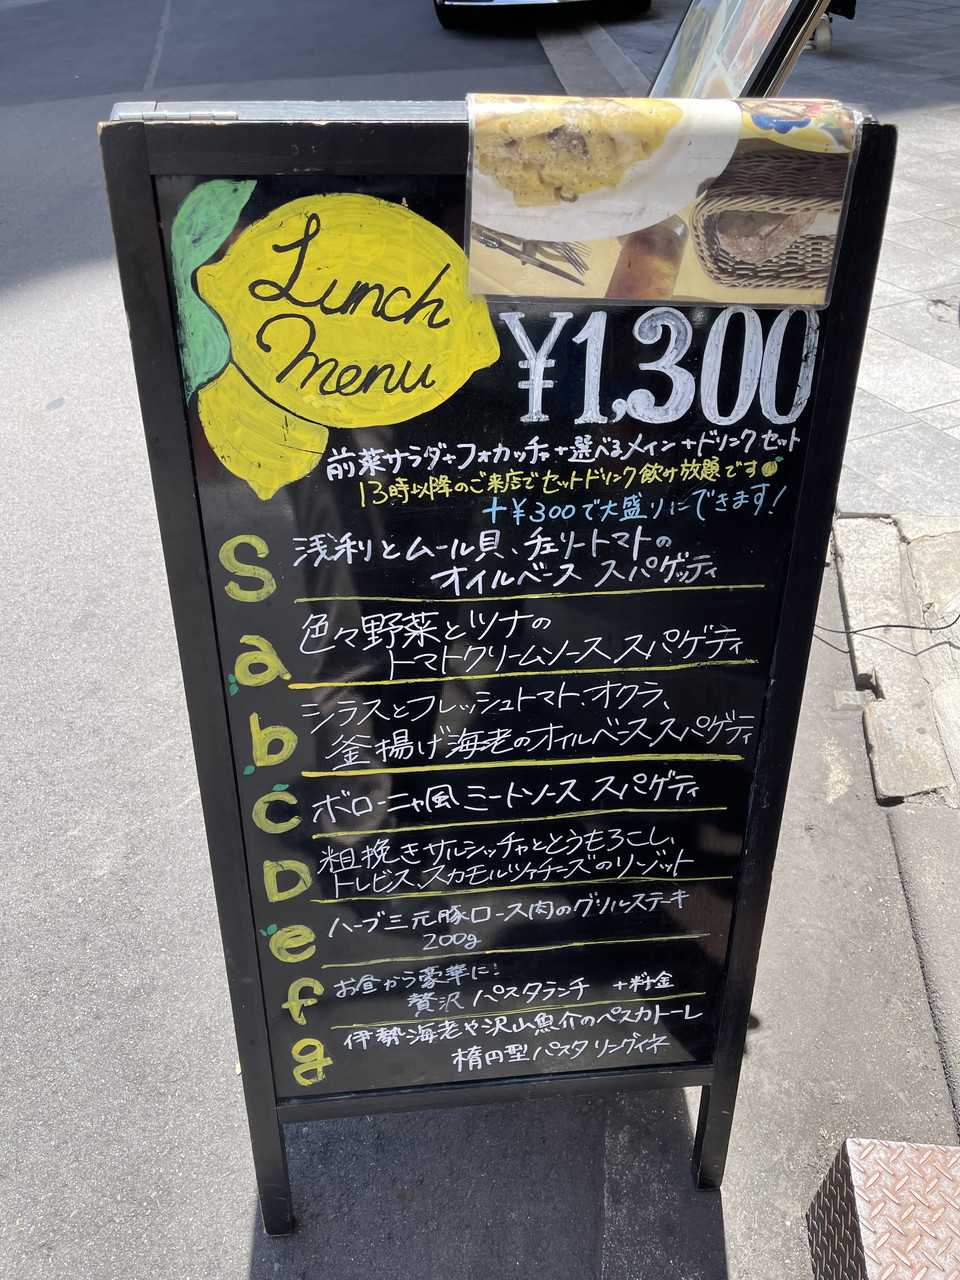 Lunch
Menu
¥1,300
前菜サラダ+フォカッチャ+選べるメイン+ドリンクセット
13時以降のご来店でセットドリンク飲み放題です
+¥300で大盛りにできます!
S 浅利とムール貝、チェリートマトの
オイルベース スパゲッティ
a 色々野菜とツナの
トマトクリームソース スパゲティ
b シラスとフレッシュトマト、オクラ、
釜揚げ海老のオイルベーススパゲティ
c ボローニャ風 ミートソース スパゲティ
D 粗挽きサルシッチャととうもろこし、
トレビス、スカモルツァチーズのリゾット
e ハーブ三元豚ロース肉のグリルステーキ
200g
f お昼から豪華に!
贅沢 パスタランチ +料金
g 伊勢海老や沢山魚介のペスカトーレ
楕円型パスタ リングイネ